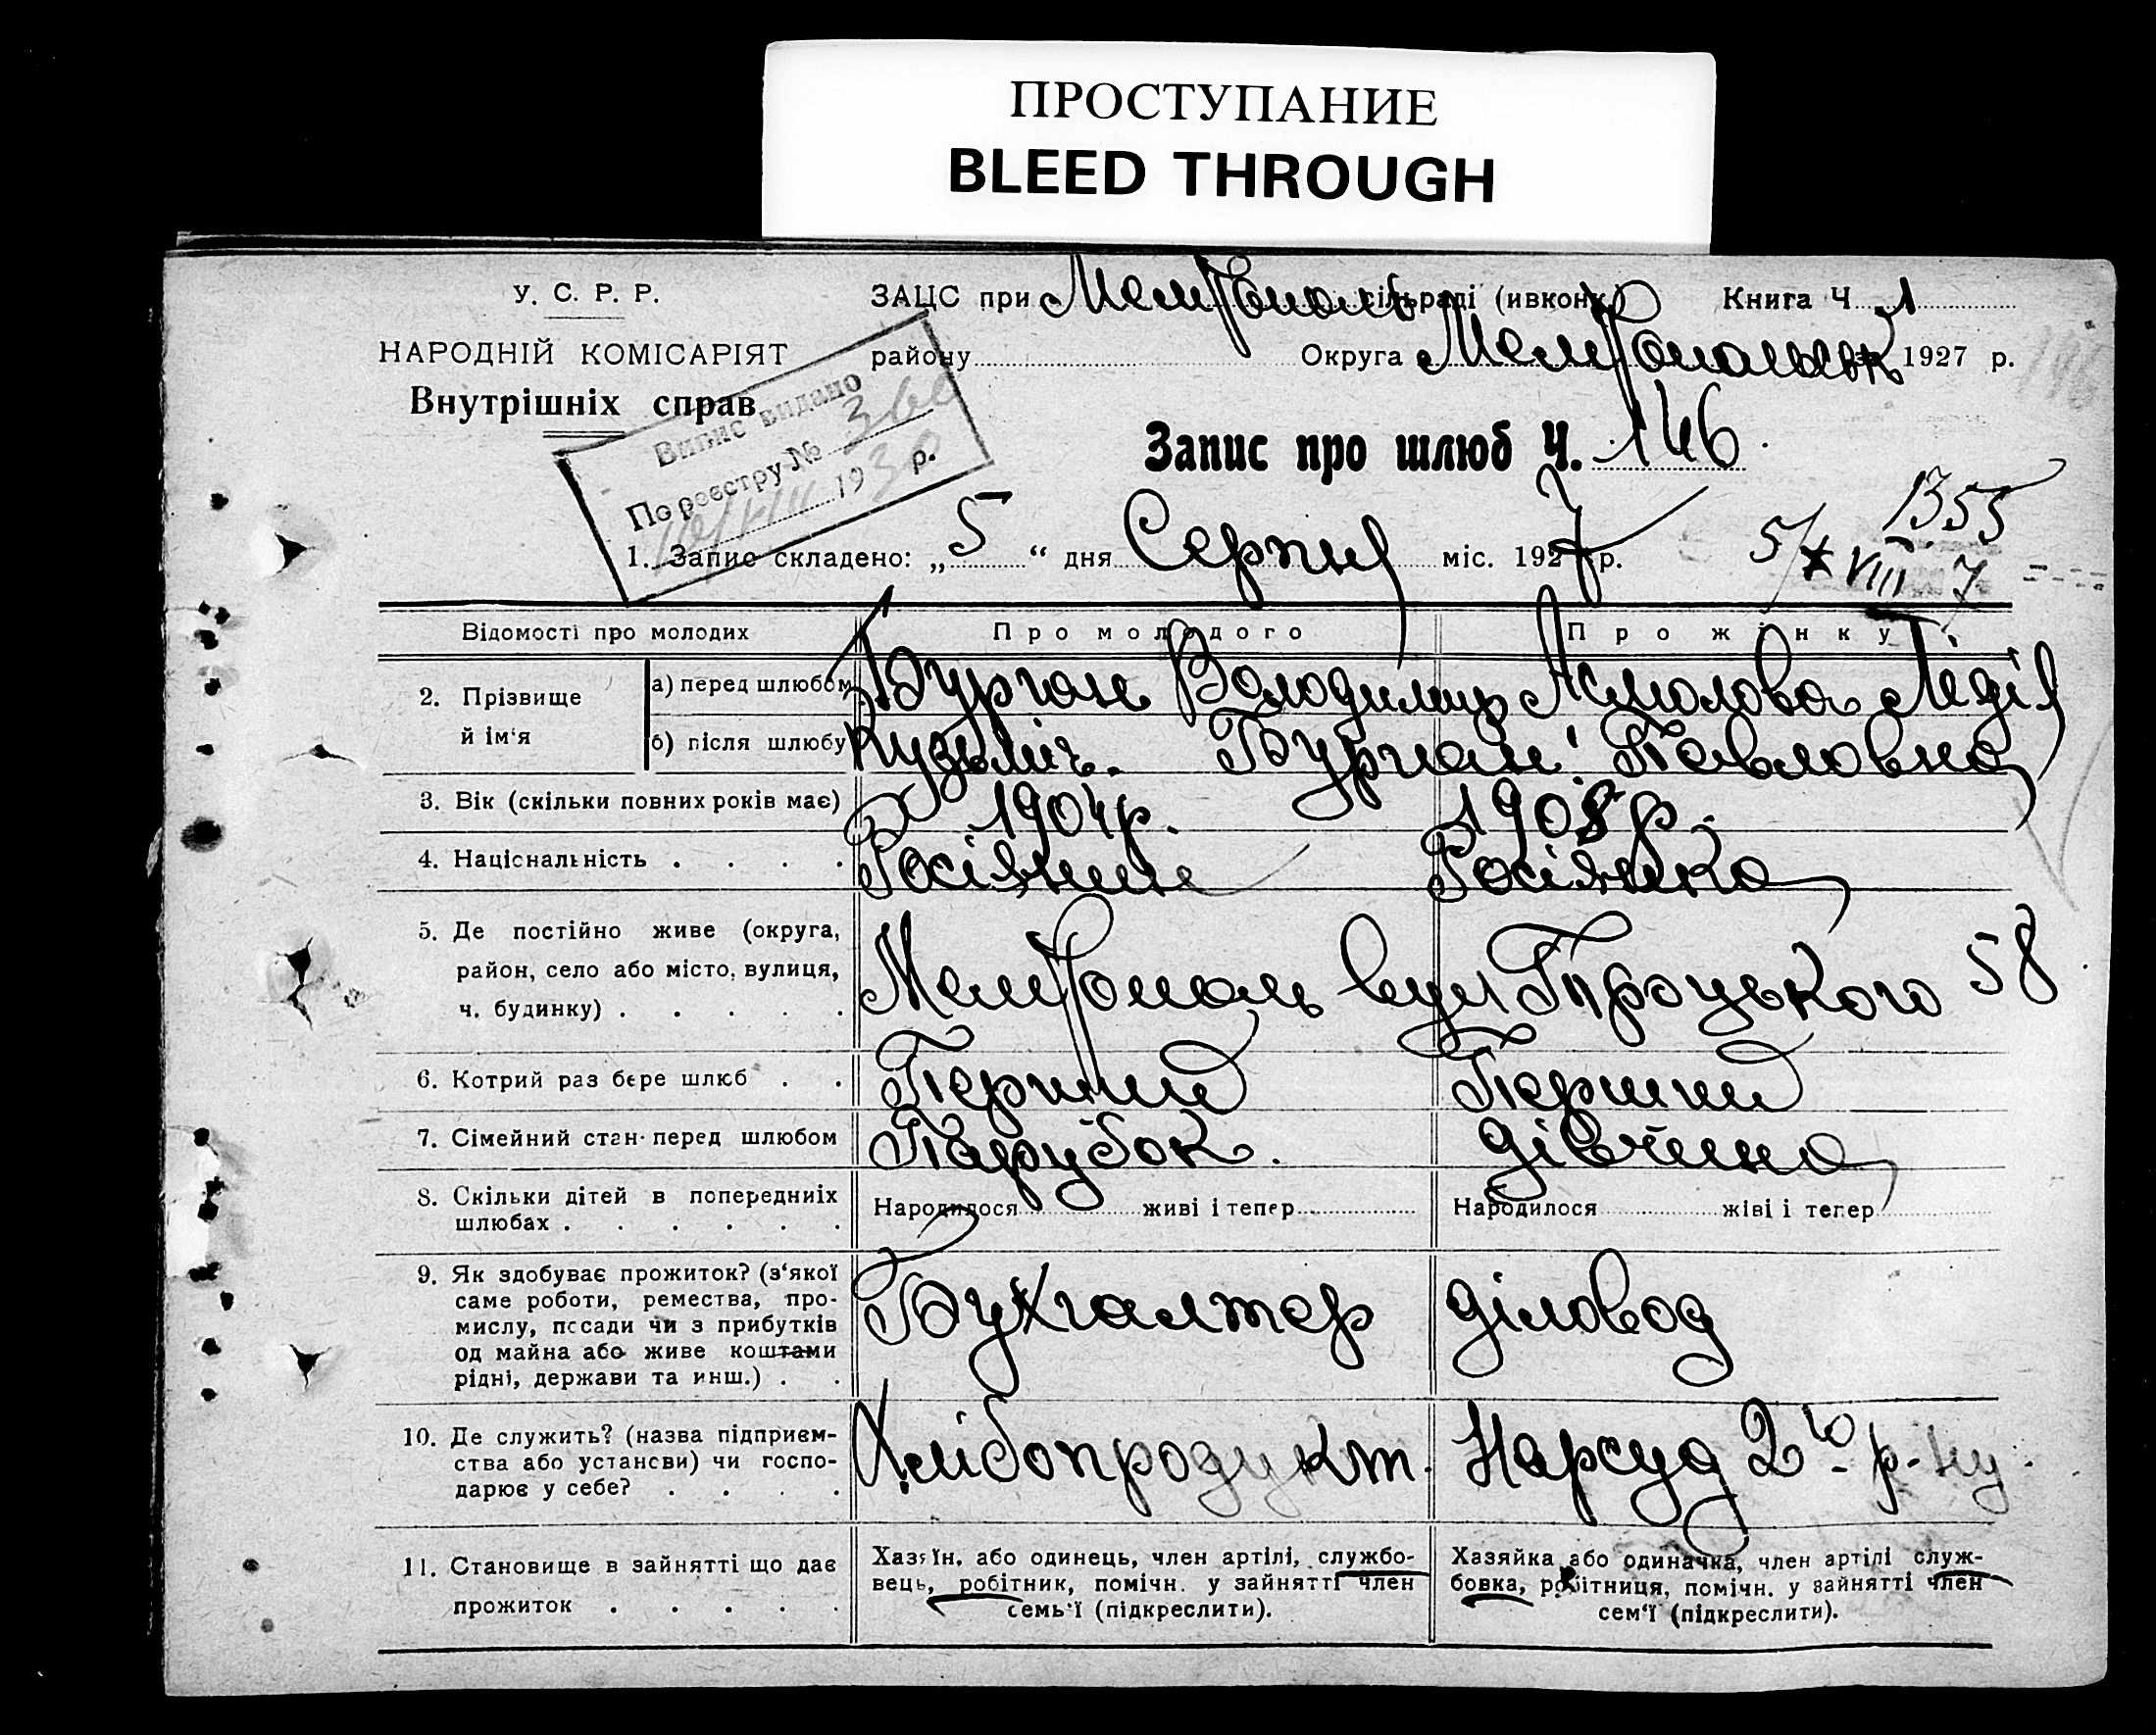 ПРОСТУПАНИЕ
BLEED THROUGH
У. С. Р. Р.
НАРОДНІЙ КОМІСАРІЯТ
Внутрішніх справ
ЗАЦС при Мелітополь сільраді (ивконк.) Книга Ч 1
району Округа Мелітопольськ 1927 р.
146
Випис видано
По реєстру № 366
1930 р.
Запис про шлюб Ч. 146.
1355
5/VIII 7
1. Запис складено: „5“ дня Серпня міс. 1927 р.
Відомості про молодих Про молодого Про жінку
2. Прізвище й ім‘я
а) перед шлюбом Бурган Володимир Асмолова Лідія
б) після шлюбу Кузьміч. Бурган Павловна
3. Вік (скільки повних років має) 1904р. 1908р.
4. Національність . . . . Росіянин Росіянка
5. Де постійно живе (округа,
район, село або місто, вулиця,
ч. будинку) . . . . . Мелітополь вул Троцького 58
6. Котрий раз бере шлюб . . Перший Перший
7. Сімейний стан перед шлюбом Парубок. дівчина
8. Скільки дітей в попередниіх
шлюбах . . . . . . Народилося живі і тепер Народилося жіві і тепер
9. Як здобуває прожиток? (з‘якої
саме роботи, ремества, про-
мислу, посади чи з прибутків
од майна або живе коштами
рідні, держави та инш.) . . Бухгалтер діловод
10. Де служить? (назва підприєм-
ства або установи) чи госпо-
дарює у себе? . . . . Хлібопродукт. Нарсуд 2го р-ну
11. Становище в зайнятті що дає
прожиток . . . . .
Хазяїн, або одинець, член артілі, службо-
вець, робітник, помічн. у зайнятті член
семь‘ї (підкреслити).
Хазяйка або одиначка, член артілі служ-
бовка, робітниця, помічн. у зайнятті член
сем‘ї (підкреслити).